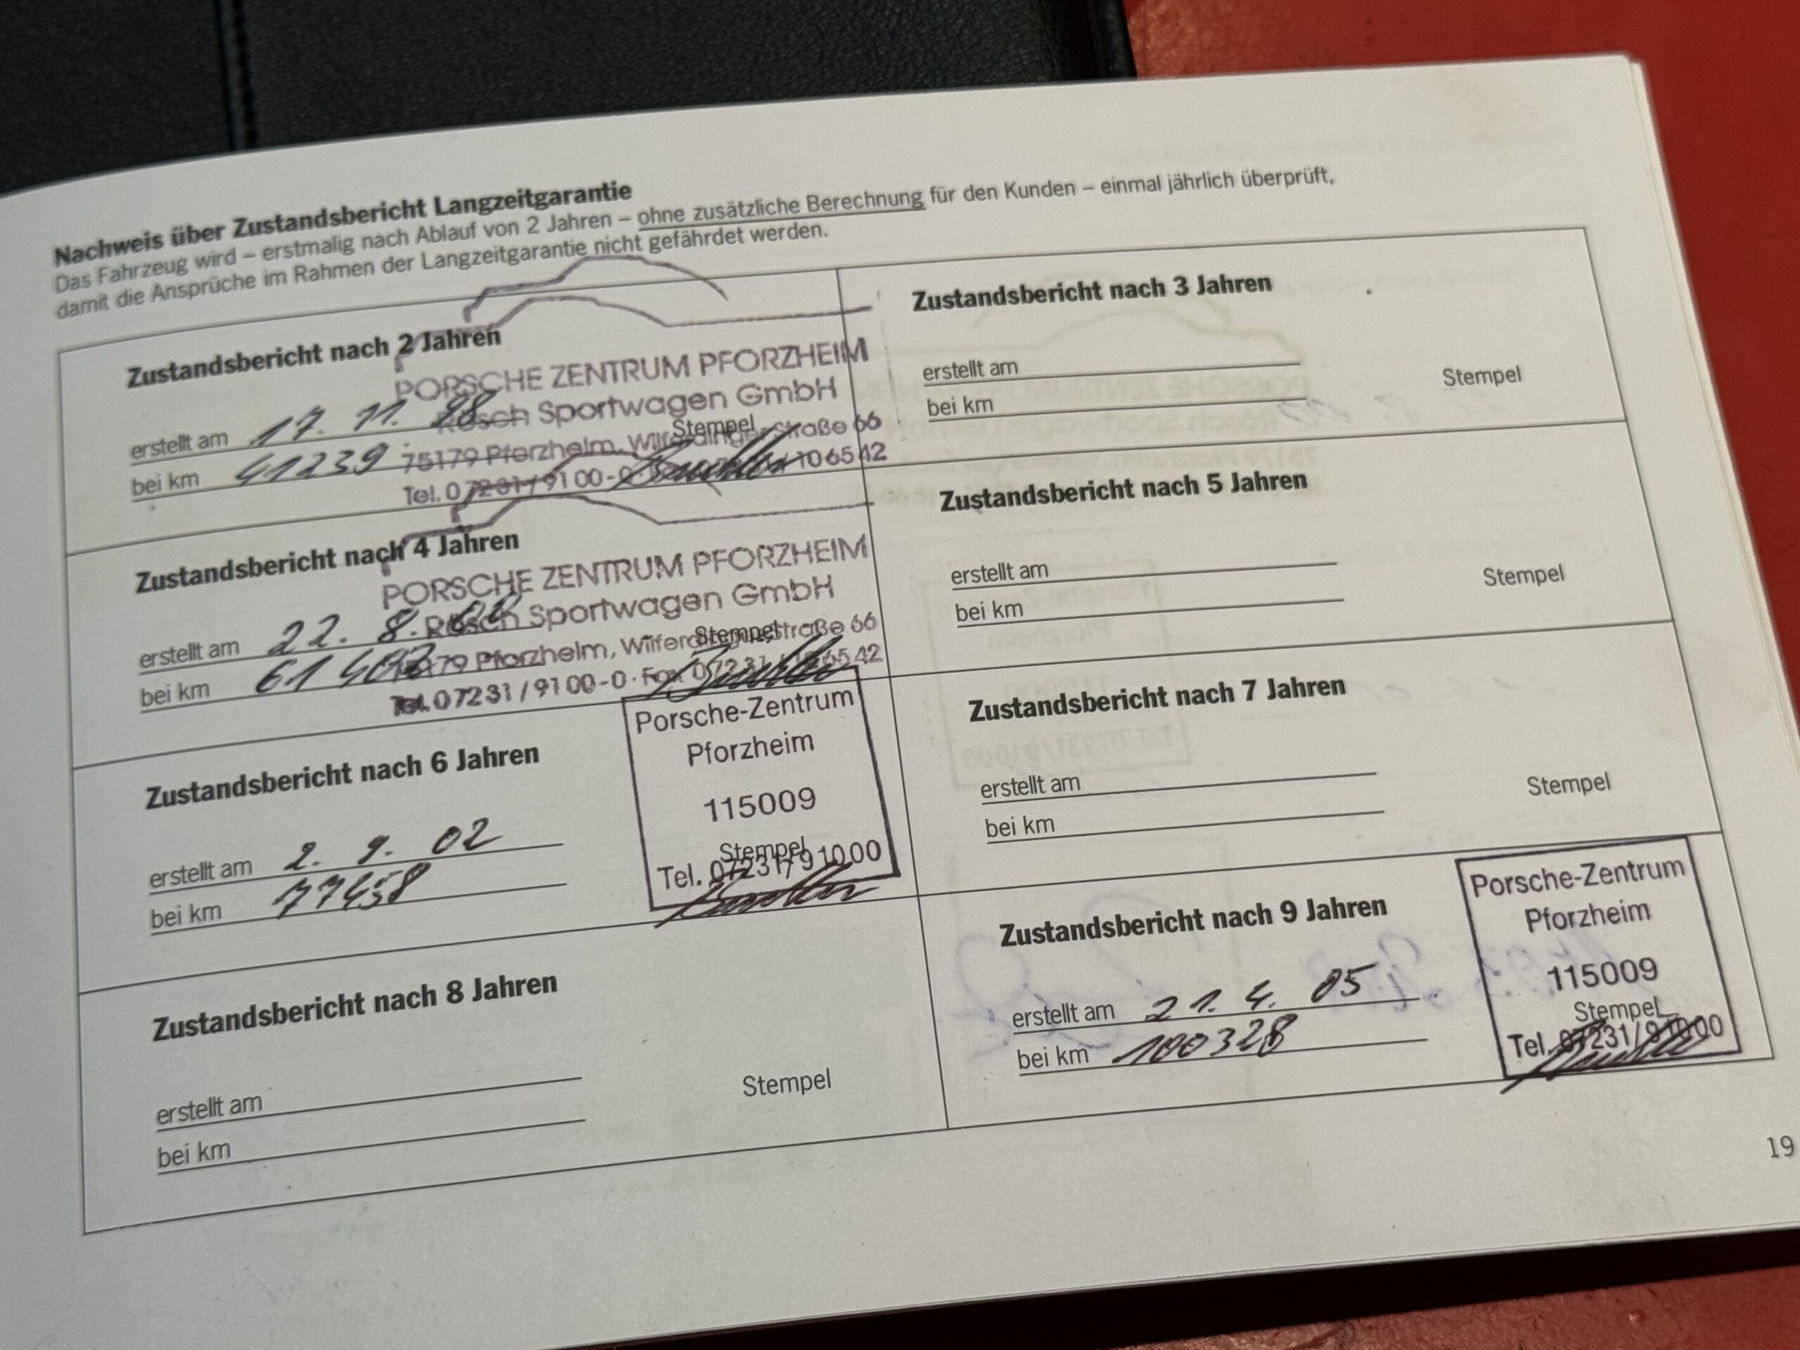 Nachweis über Zustandsbericht Langzeitgarantie
Das Fahrzeug wird – erstmalig nach Ablauf von 2 Jahren – ohne zusätzliche Berechnung für den Kunden – einmal jährlich überprüft,
damit die Ansprüche im Rahmen der Langzeitgarantie nicht gefährdet werden.
Zustandsbericht nach 2 Jahren
PORSCHE ZENTRUM PFORZHEIM
Rösch Sportwagen GmbH
Stempel
75179 Pforzheim, Wilferdinger Straße 66
Tel. 07231/9100-0
106542
erstellt am 17. 11. 98
bei km 41239
Zustandsbericht nach 3 Jahren
erstellt am
bei km
Stempel
Zustandsbericht nach 4 Jahren
PORSCHE ZENTRUM PFORZHEIM
Rösch Sportwagen GmbH
Stempel
75179 Pforzheim, Wilferdinger Straße 66
Tel. 07231/9100-0 · Fax 07231/106542
erstellt am 22. 8.
bei km 61
Zustandsbericht nach 5 Jahren
erstellt am
bei km
Stempel
Zustandsbericht nach 6 Jahren
Porsche-Zentrum
Pforzheim
115009
Stempel
Tel. 07231/91000
erstellt am 2. 9. 02
bei km 77458
Zustandsbericht nach 7 Jahren
erstellt am
bei km
Stempel
Zustandsbericht nach 8 Jahren
erstellt am
bei km
Stempel
Zustandsbericht nach 9 Jahren
Porsche-Zentrum
Pforzheim
115009
Stempel
Tel. 07231/91000
erstellt am 21. 4. 05
bei km 100328
19